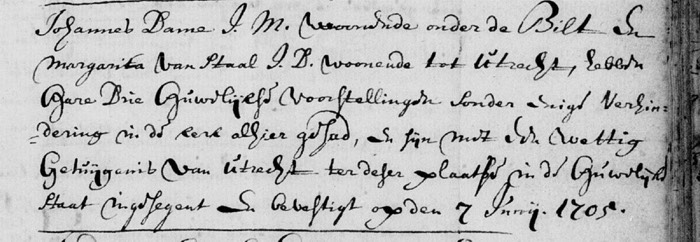 Johannes Dame J. M. woonende onder de Bilt En
Margarita van Staal J. D. woonende tot Utrecht, hebben
Hare Drie Huwelijkse voorstellingen sonder enige verhin=
=dering in de kerk alhier gehad, en sijn met een wettig
Getuijgenis van Utrecht ter deser plaatse in de Huwelijkse
Staat ingesegent En bevestigt op den 7 Junij. 1705.